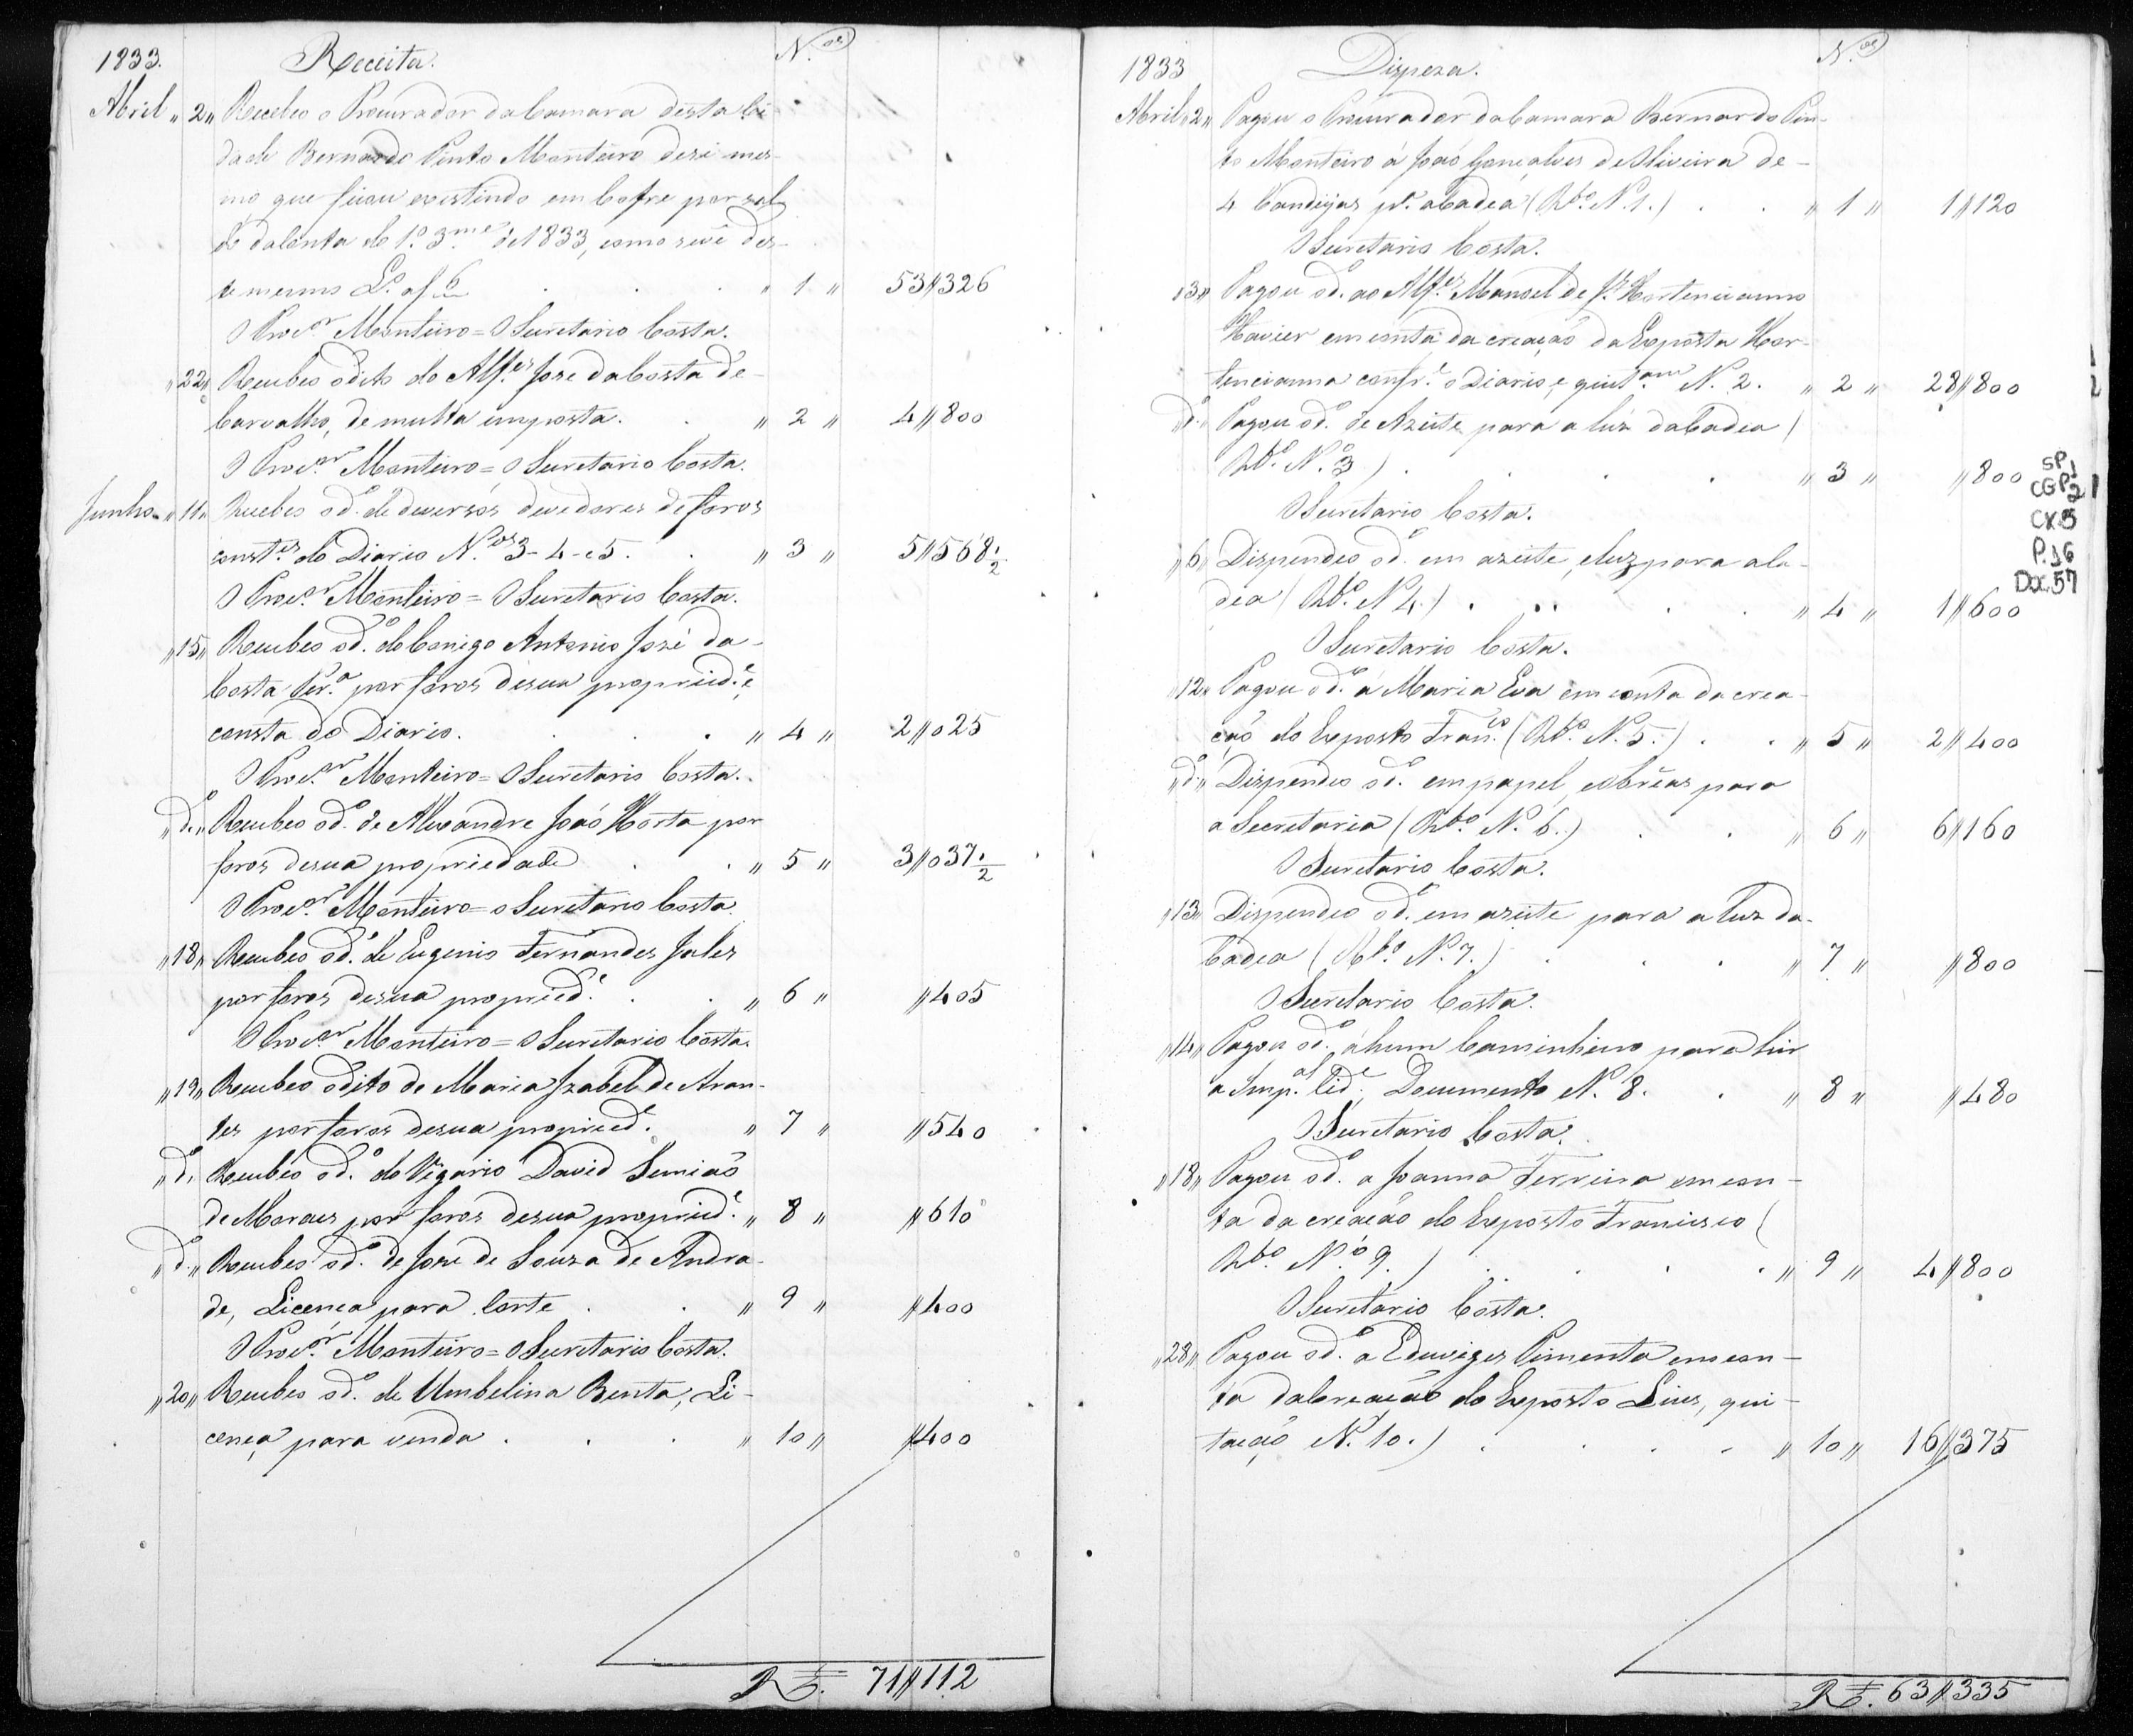 1833. Receita. N.os
Abril " 2 " Recebeo o Procurador da Camara desta Ci-
dade Bernardo Pinto Monteiro desi mes-
mo que ficou existindo em Cofre por sal-
do da Conta do 1º 3.me de 1833, como se vê des-
te mesmo L.º af 6 " 1 " 53$326
O Proc.or Monteiro = O Secretario Costa.
" 22 " Recebeo odito do Alf.es Jose da Costa de
Carvalho, de multa imposta. " 2 " 4$800
O Proc.or Monteiro = O Secretario Costa.
Junho " 11 " Recebeo od.º de diversos devedores de foros
const.es do Diario N.os 3-4-e5. " 3 " 5$568½
O Proc.or Monteiro = O Secretario Costa.
" 15 " Recebeo od.º do Conigo Antonio José da
Costa Fer.ª por foros desua propried.e,
consta do Diario. " 4 " 2$025
O Proc.or Monteiro = O Secretario Costa.
" d.º " Recebeo od.º de Alexandre João Horta por
foros desua propriedade " 5 " 3$037½
O Proc.or Monteiro = o Secretario Costa
" 18 " Recebeo od.º de Eugenio Fernandes Jales
por foros desua propried.e " 6 " $405
O Proc.or Monteiro = O Secretario Costa.
" 19 " Recebeo odito de Maria Izabel de Aran-
tes por foros desua propried.e " 7 " $540
" d.º Recebeo od.º do Vigario David Semião
de Moraes por foros desua propried.e " 8 " $610
" d.º " Recebeo od.º de Jose de Souza de Andra-
de, Licença para Corte " 9 " $400
O Proc.or Monteiro = O Secretario Costa.
" 20 " Recebeo od.º de Umbelina Benta, Li-
cença para venda . " 10 " $400
R.s 71$112
1833 Dispeza. N.os
Abril " 2 " Pagou o Procurador da Camara Bernardo Pin-
to Monteiro á João Gonçalves de Oliveira de
4 Candeyas p.ª a Cadea (Rb.º N.1.) " 1 " 1$120
O Secretario Costa.
" 3 " Pagou od.º ao Alf.es Manoel de Hortencianno
Xavier em conta da creação da Exposta Hor-
tencianna conf.e o Diario, e quit.am N. 2. " 2 " 28$800
d.º " Pagou od.º de Azeite para a luz da Cadea (
Rb.º N.º 3.) " 3 " $800
O Secretario Costa.
SP1
CGP.2
CX.5
P.16
Dx.57
" 6 " Dispendeo od.º em azeite, eluz para a Ca-
dea (Rb.º N 4.) " 4 " 1$600
O Secretario Costa.
" 12 " Pagou od.º á Maria Eva em conta da crea-
ção do Exposto Fran.co (Rb.º N. 5.) " 5 " 2$400
" d.º " Dispendeo od.º em papel, e Obrêas para
a Secretaria (Rb.º N. 6.) " 6 " 6$160
O Secretario Costa.
" 13 " Dispendeo od.º em azeite para a luz da
Cadea (Rb.º N. 7.) " 7 " $800
O Secretario Costa.
" 14 " Pagou od.º áhum Caminheiro para hir
a Imp.al Cid.e, Documento N. 8. " 8 " $480
O Secretario Costa.
" 18 " Pagou od.º a Joanna Ferreira em con-
ta da creação do Exposto Francisco (
Rb.º N.º 9.) " 9 " 4$800
O Secretario Costa.
" 28 " Pagou od.º a Eduviges Pimenta em con-
ta da Creação do Exposto Luis, qui-
tação N. 10.) " 10 " 16$375
R.s 63$335